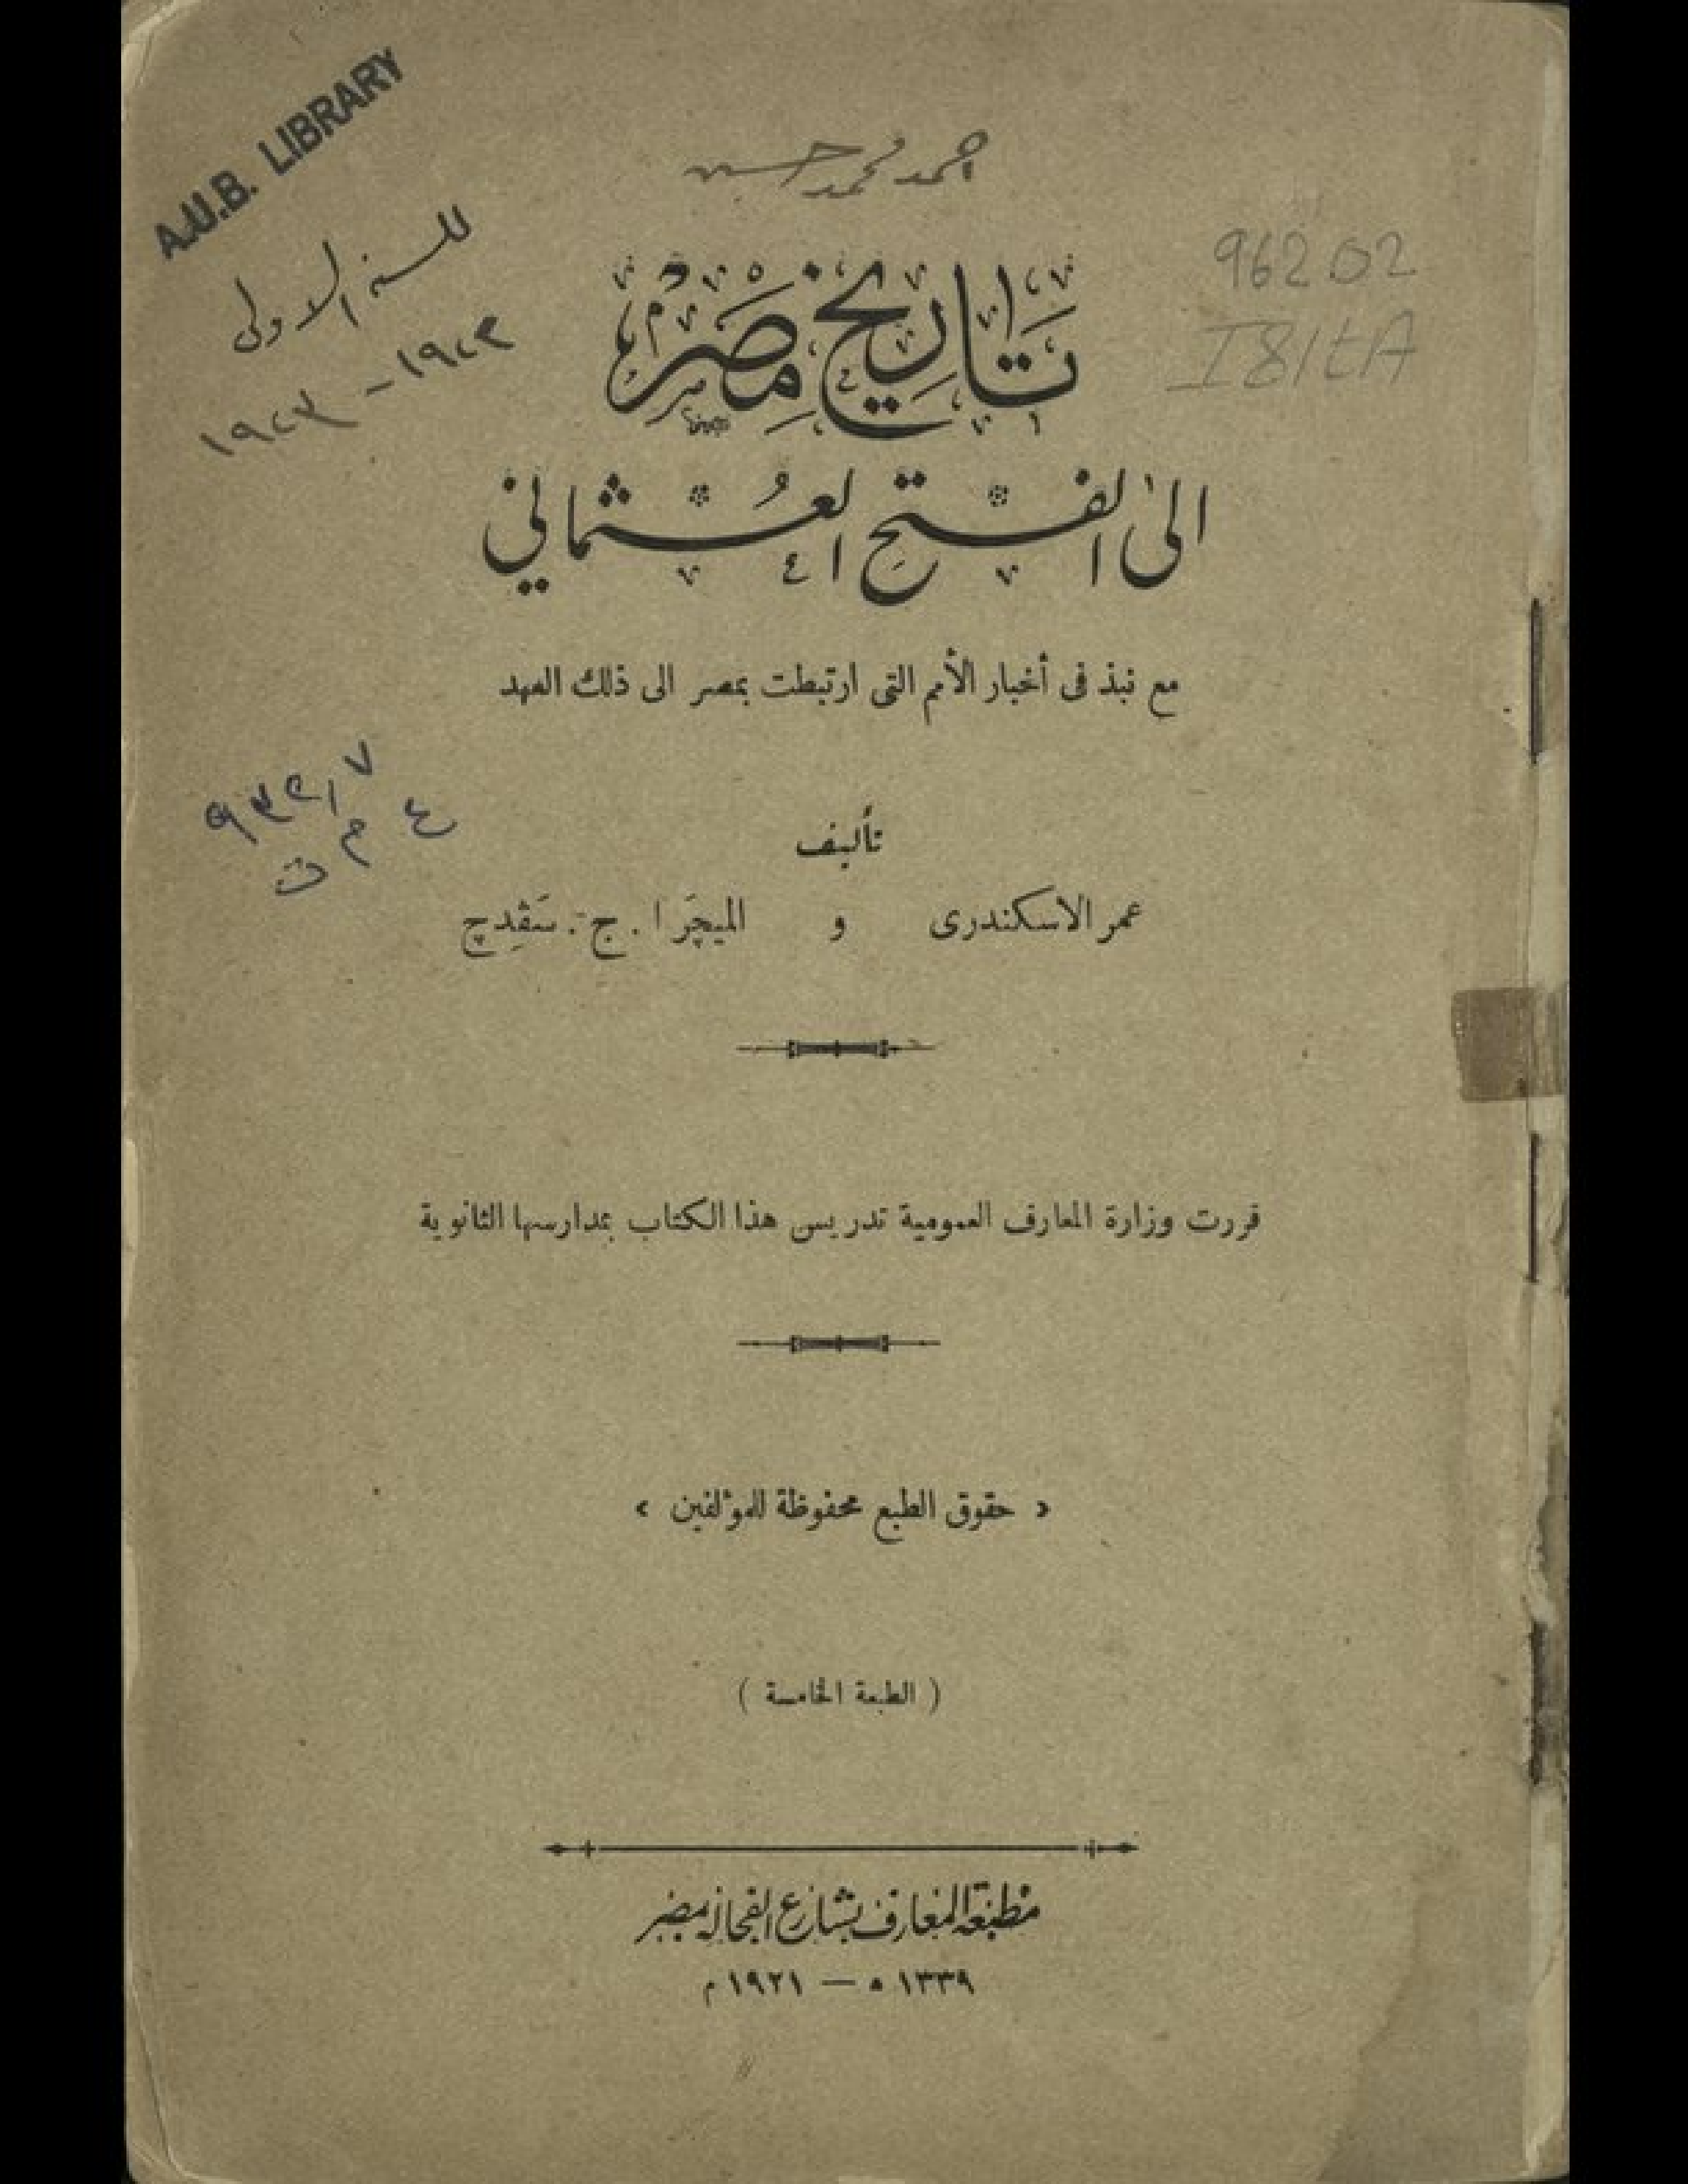 A.U.B. LIBRARY
احمد محمد حسين
للسنة الاولى
١٩٢٢ - ١٩٢٣
96202
I81tA
تاريخ مصر
الى الفتح العثماني
مع نبذ فى أخبار الأمم التى ارتبطت بمصر الى ذلك العهد
٩٣٢٫٧
ع م ت
تأليف
عمر الاسكندرى و الميچر ا . ج . سَفِدچ
قررت وزارة المعارف العمومية تدريس هذا الكتاب بمدارسها الثانوية
« حقوق الطبع محفوظة للمؤلفين »
( الطبعة الخامسة )
مطبعة المعارف بشارع الفجالة بمصر
١٣٣٩ ه — ١٩٢١ م